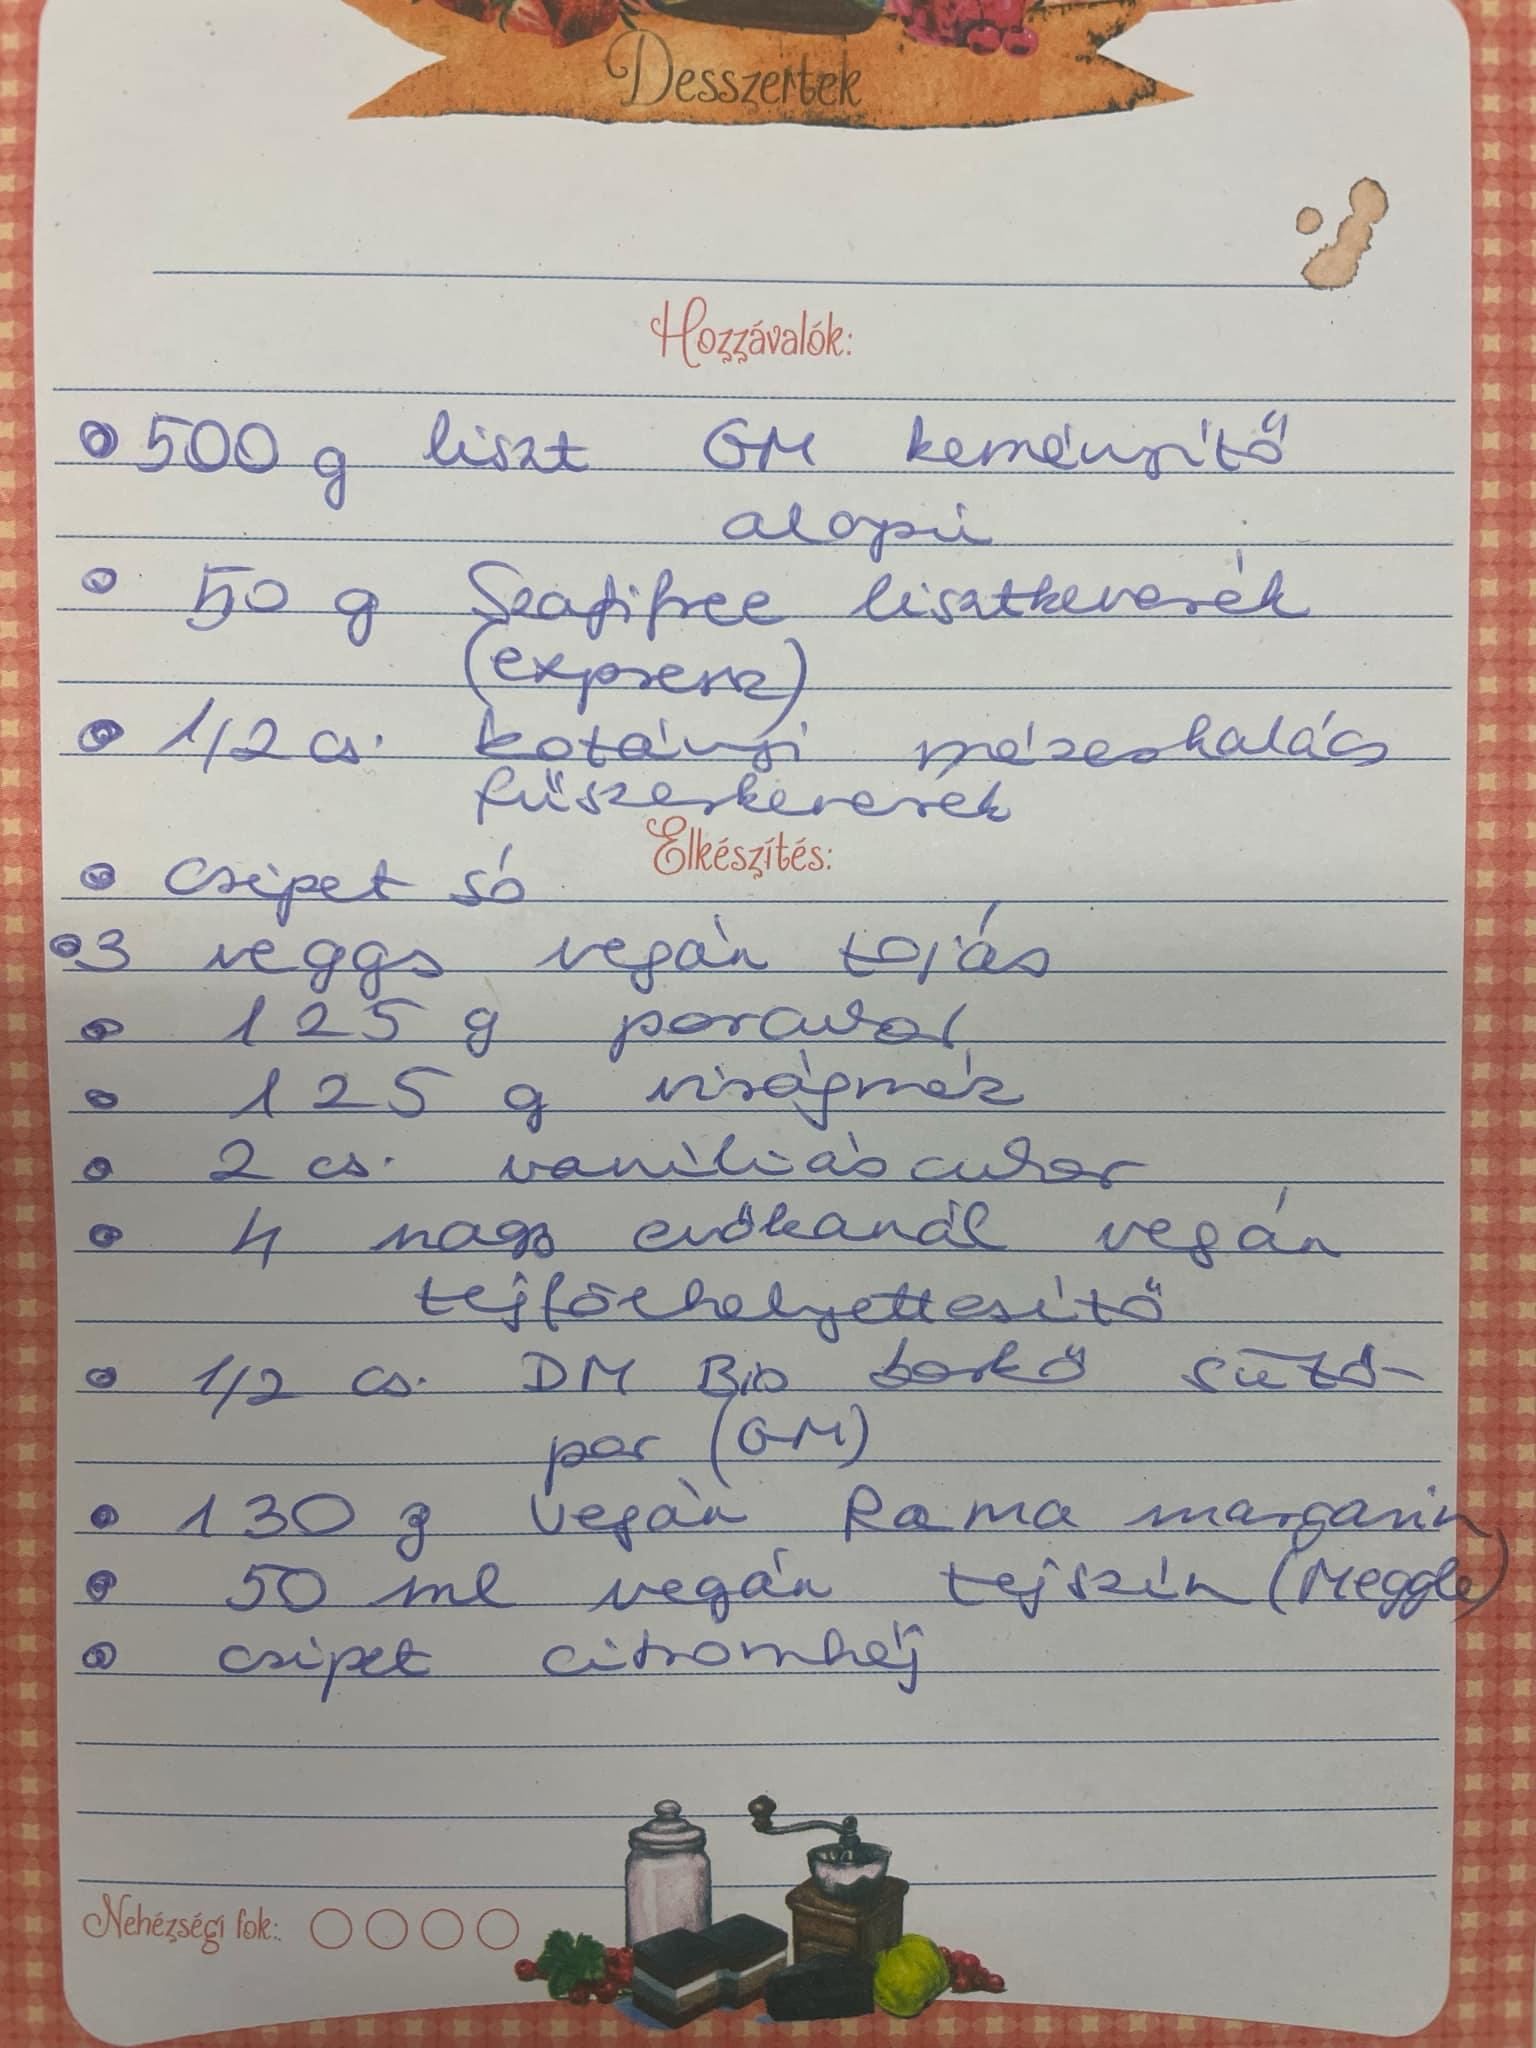 Desszertek
Hozzávalók:
500 g liszt GM keményítő
alapú
50 g Szafifree lisztkeverék
(expressz)
1/2 cs. kotányi mézeskalács
fűszerkeverék
Elkészítés:
csipet só
3 veggs vegán tojás
125 g porcukor
125 g virágméz
2 cs. vaniliás cukor
4 nagy evőkanál vegán
tejfölhelyettesítő
1/2 cs. DM Bio borkő sütő-
por (GM)
130 g Vegán Rama margarin
50 ml vegán tejszín (Meggle)
csipet citromhéj
Nehézségi fok: